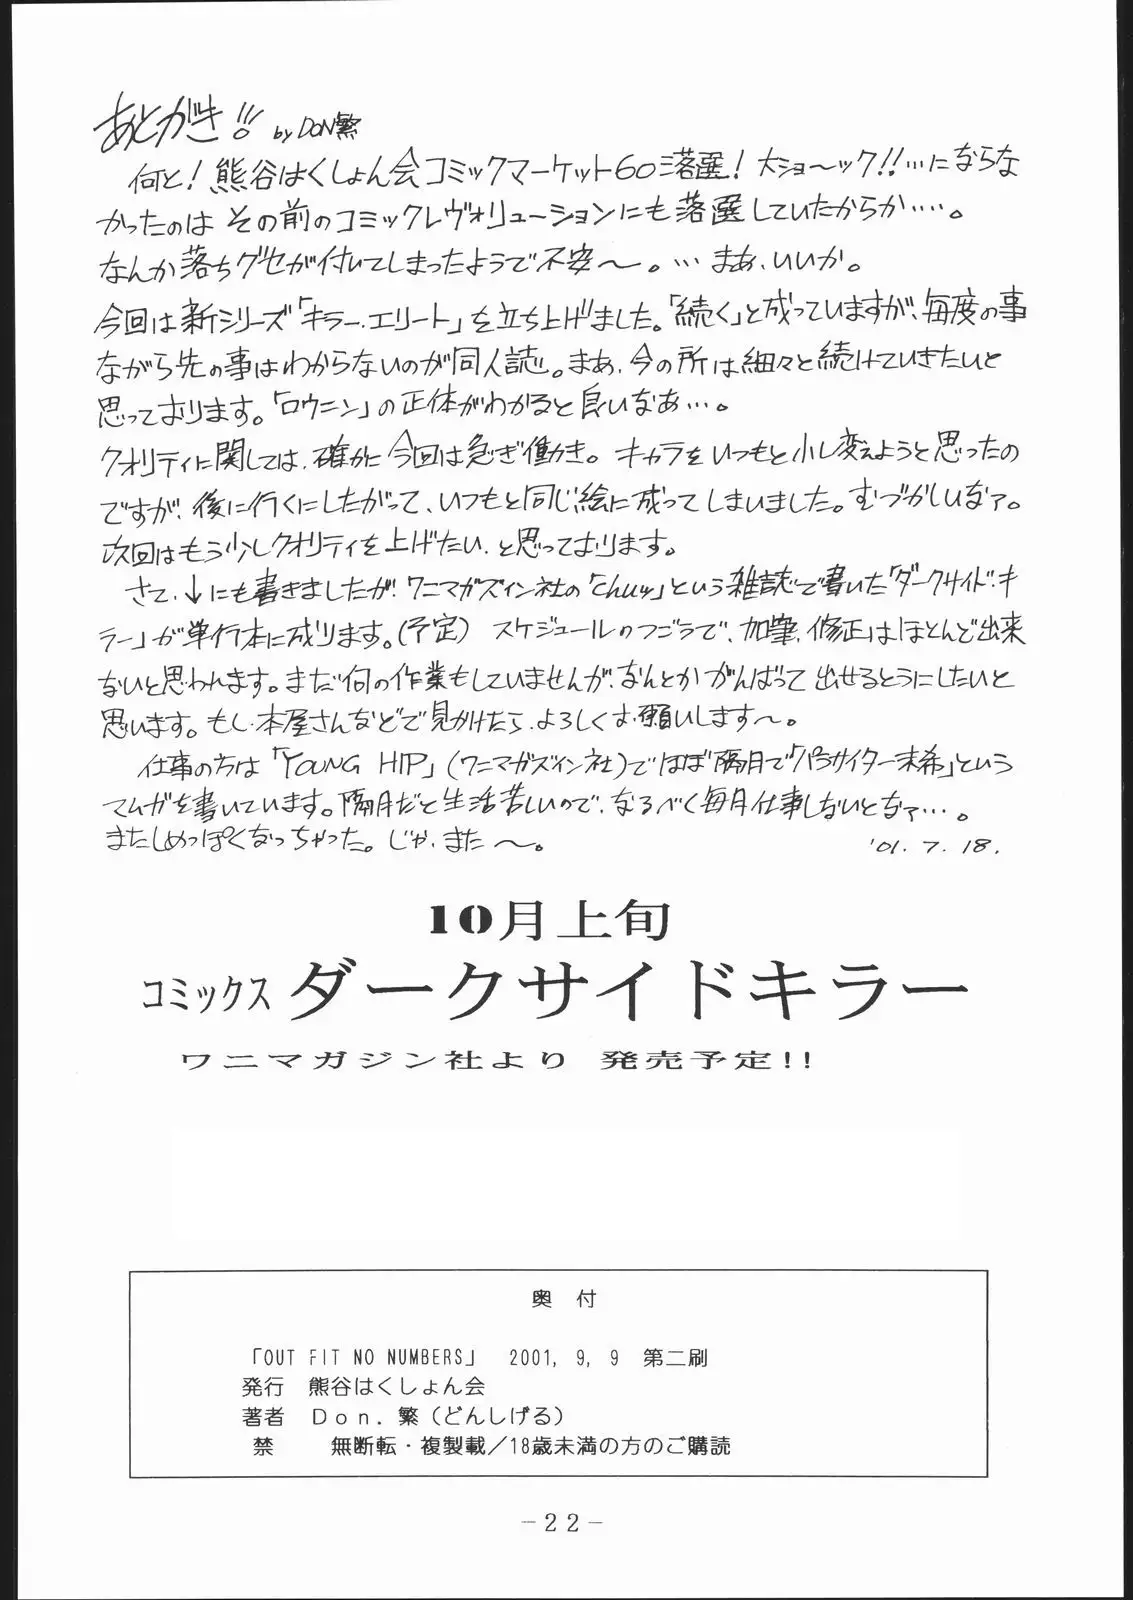 あとがき!! by DON繁
何と!熊谷はくしょん会コミックマーケット60落選!大ショ〜ック!!…にならな
かったのは その前のコミックレヴォリューションにも落選していたからか‥‥。
なんか落ちグセが付いてしまったようで不安〜。…まあ、いいか。
今回は新シリーズ「キラー.エリート」を立ち上げました。「続く」と成っていますが、毎度の事
ながら先の事はわからないのが同人誌。まあ、今の所は細々と続けていきたいと
思っております。「ロウニン」の正体がわかると良いなあ…。
クオリティに関しては、確かに今回は急ぎ働き。キャラをいつもと少し変えようと思ったの
ですが、後に行くにしたがって、いつもと同じ絵に成ってしまいました。むづかしいなァ。
次回はもう少しクオリティを上げたい、と思っております。
さて、↓にも書きましたが、ワニマガズィン社の「Chuッ」という雑誌で書いた「ダークサイド・キ
ラー」が単行本に成ります。(予定) スケジュールのつごうで、加筆、修正はほとんど出来
ないと思われます。まだ何の作業もしていませんが、なんとかがんばって出せるようにしたいと
思います。もし、本屋さんなどで見かけたら、よろしくお願いします〜。
仕事の方は「YOUNG HIP」(ワニマガズィン社)でほぼ隔月で「パラサイター未希」という
マムガを書いています。隔月だと生活苦しいので、なるべく毎月仕事しないとなァ…。
またしめっぽくなっちゃった。じゃ、また〜。 '01.7.18.
10月上旬
コミックス ダークサイドキラー
ワニマガジン社より 発売予定!!
奥 付
「OUT FIT NO NUMBERS」 2001, 9, 9 第二刷
発行 熊谷はくしょん会
著者 Don. 繁(どんしげる)
禁 無断転・複製載/18歳未満の方のご購読
-22-